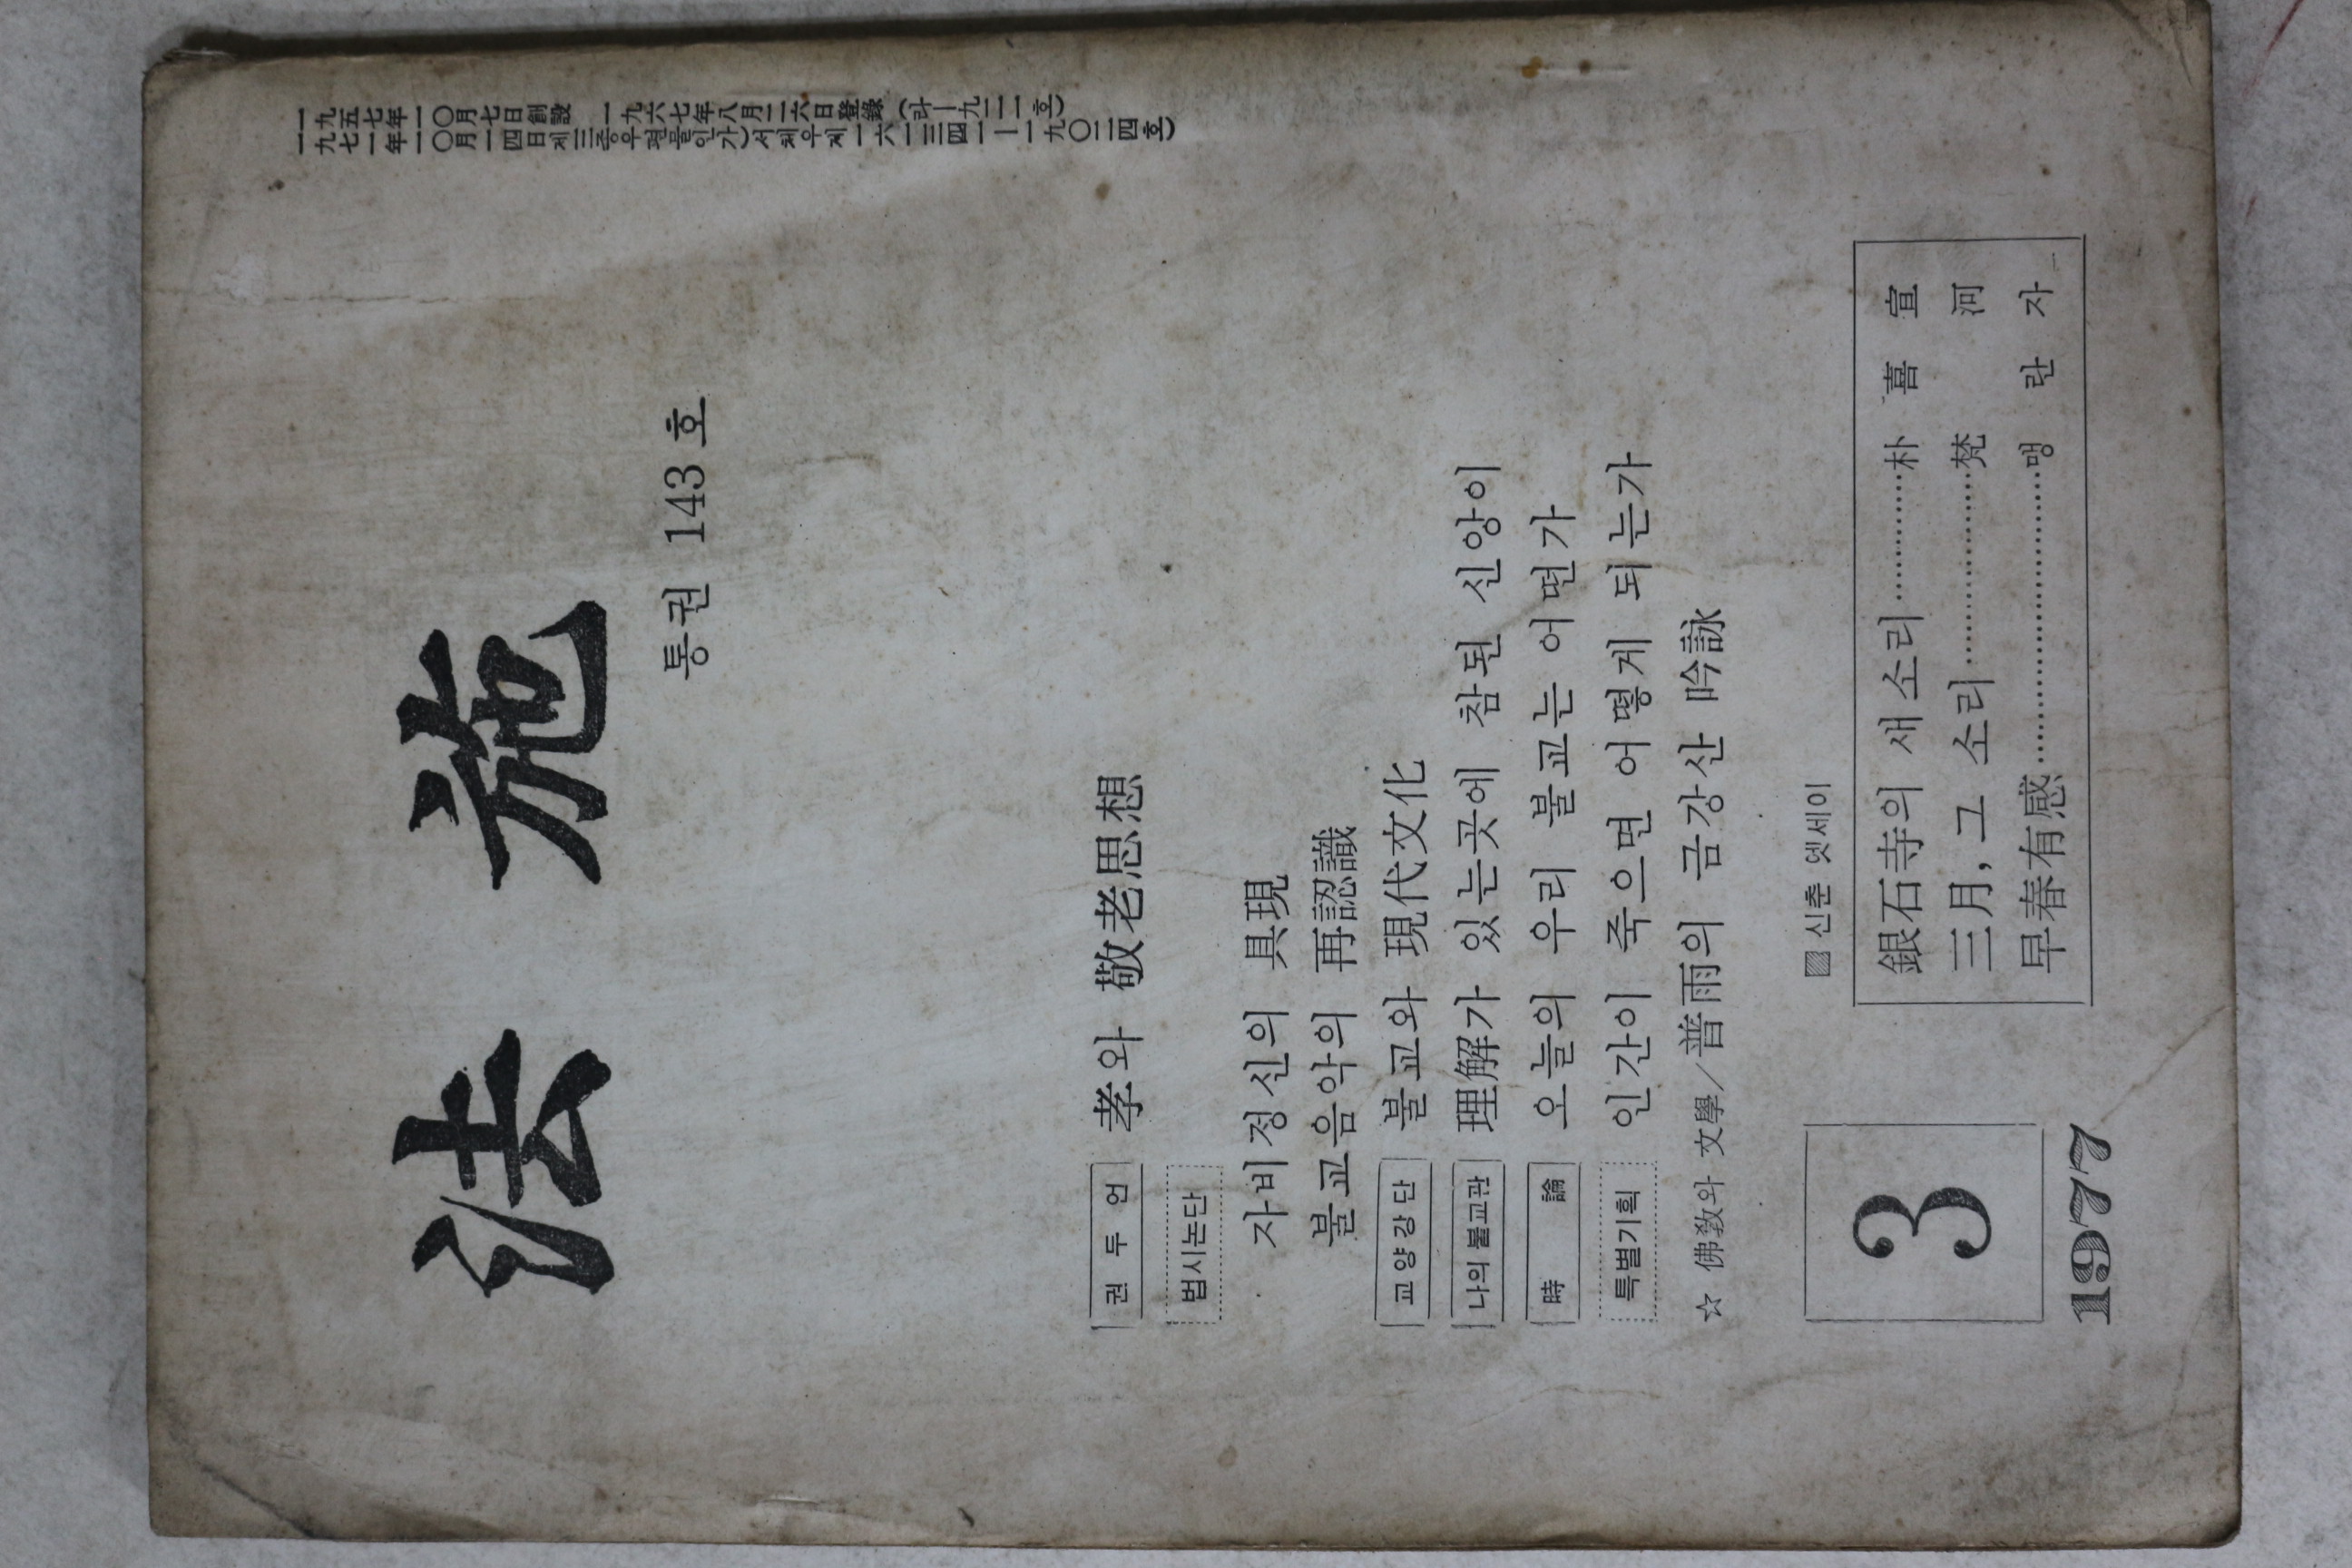 一九五七年一〇月七日創設 一九六七年八月二六日登錄 (라一九二一호)
一九七一年一〇月一四日 제三종우편물인가) 서체우제一六一三四一一一九〇二四호)
法 施
통권 143 호
권 두 언 孝와 敬老思想
법시논단
자비정신의 具現
불교음악의 再認識
교양강단 불교와 現代文化
나의 불교관 理解가 있는곳에 참된 신앙이
時 論 오늘의 우리 불교는 어떤가
특별기획 인간이 죽으면 어떻게 되는가
☆ 佛敎와 文學／普雨의 금강산 吟詠
3
1977
▨ 신춘 엣세이
銀石寺의 새소리…………朴 喜 宣
三月, 그 소리………………梵 河
早春有感………………………맹 란 자